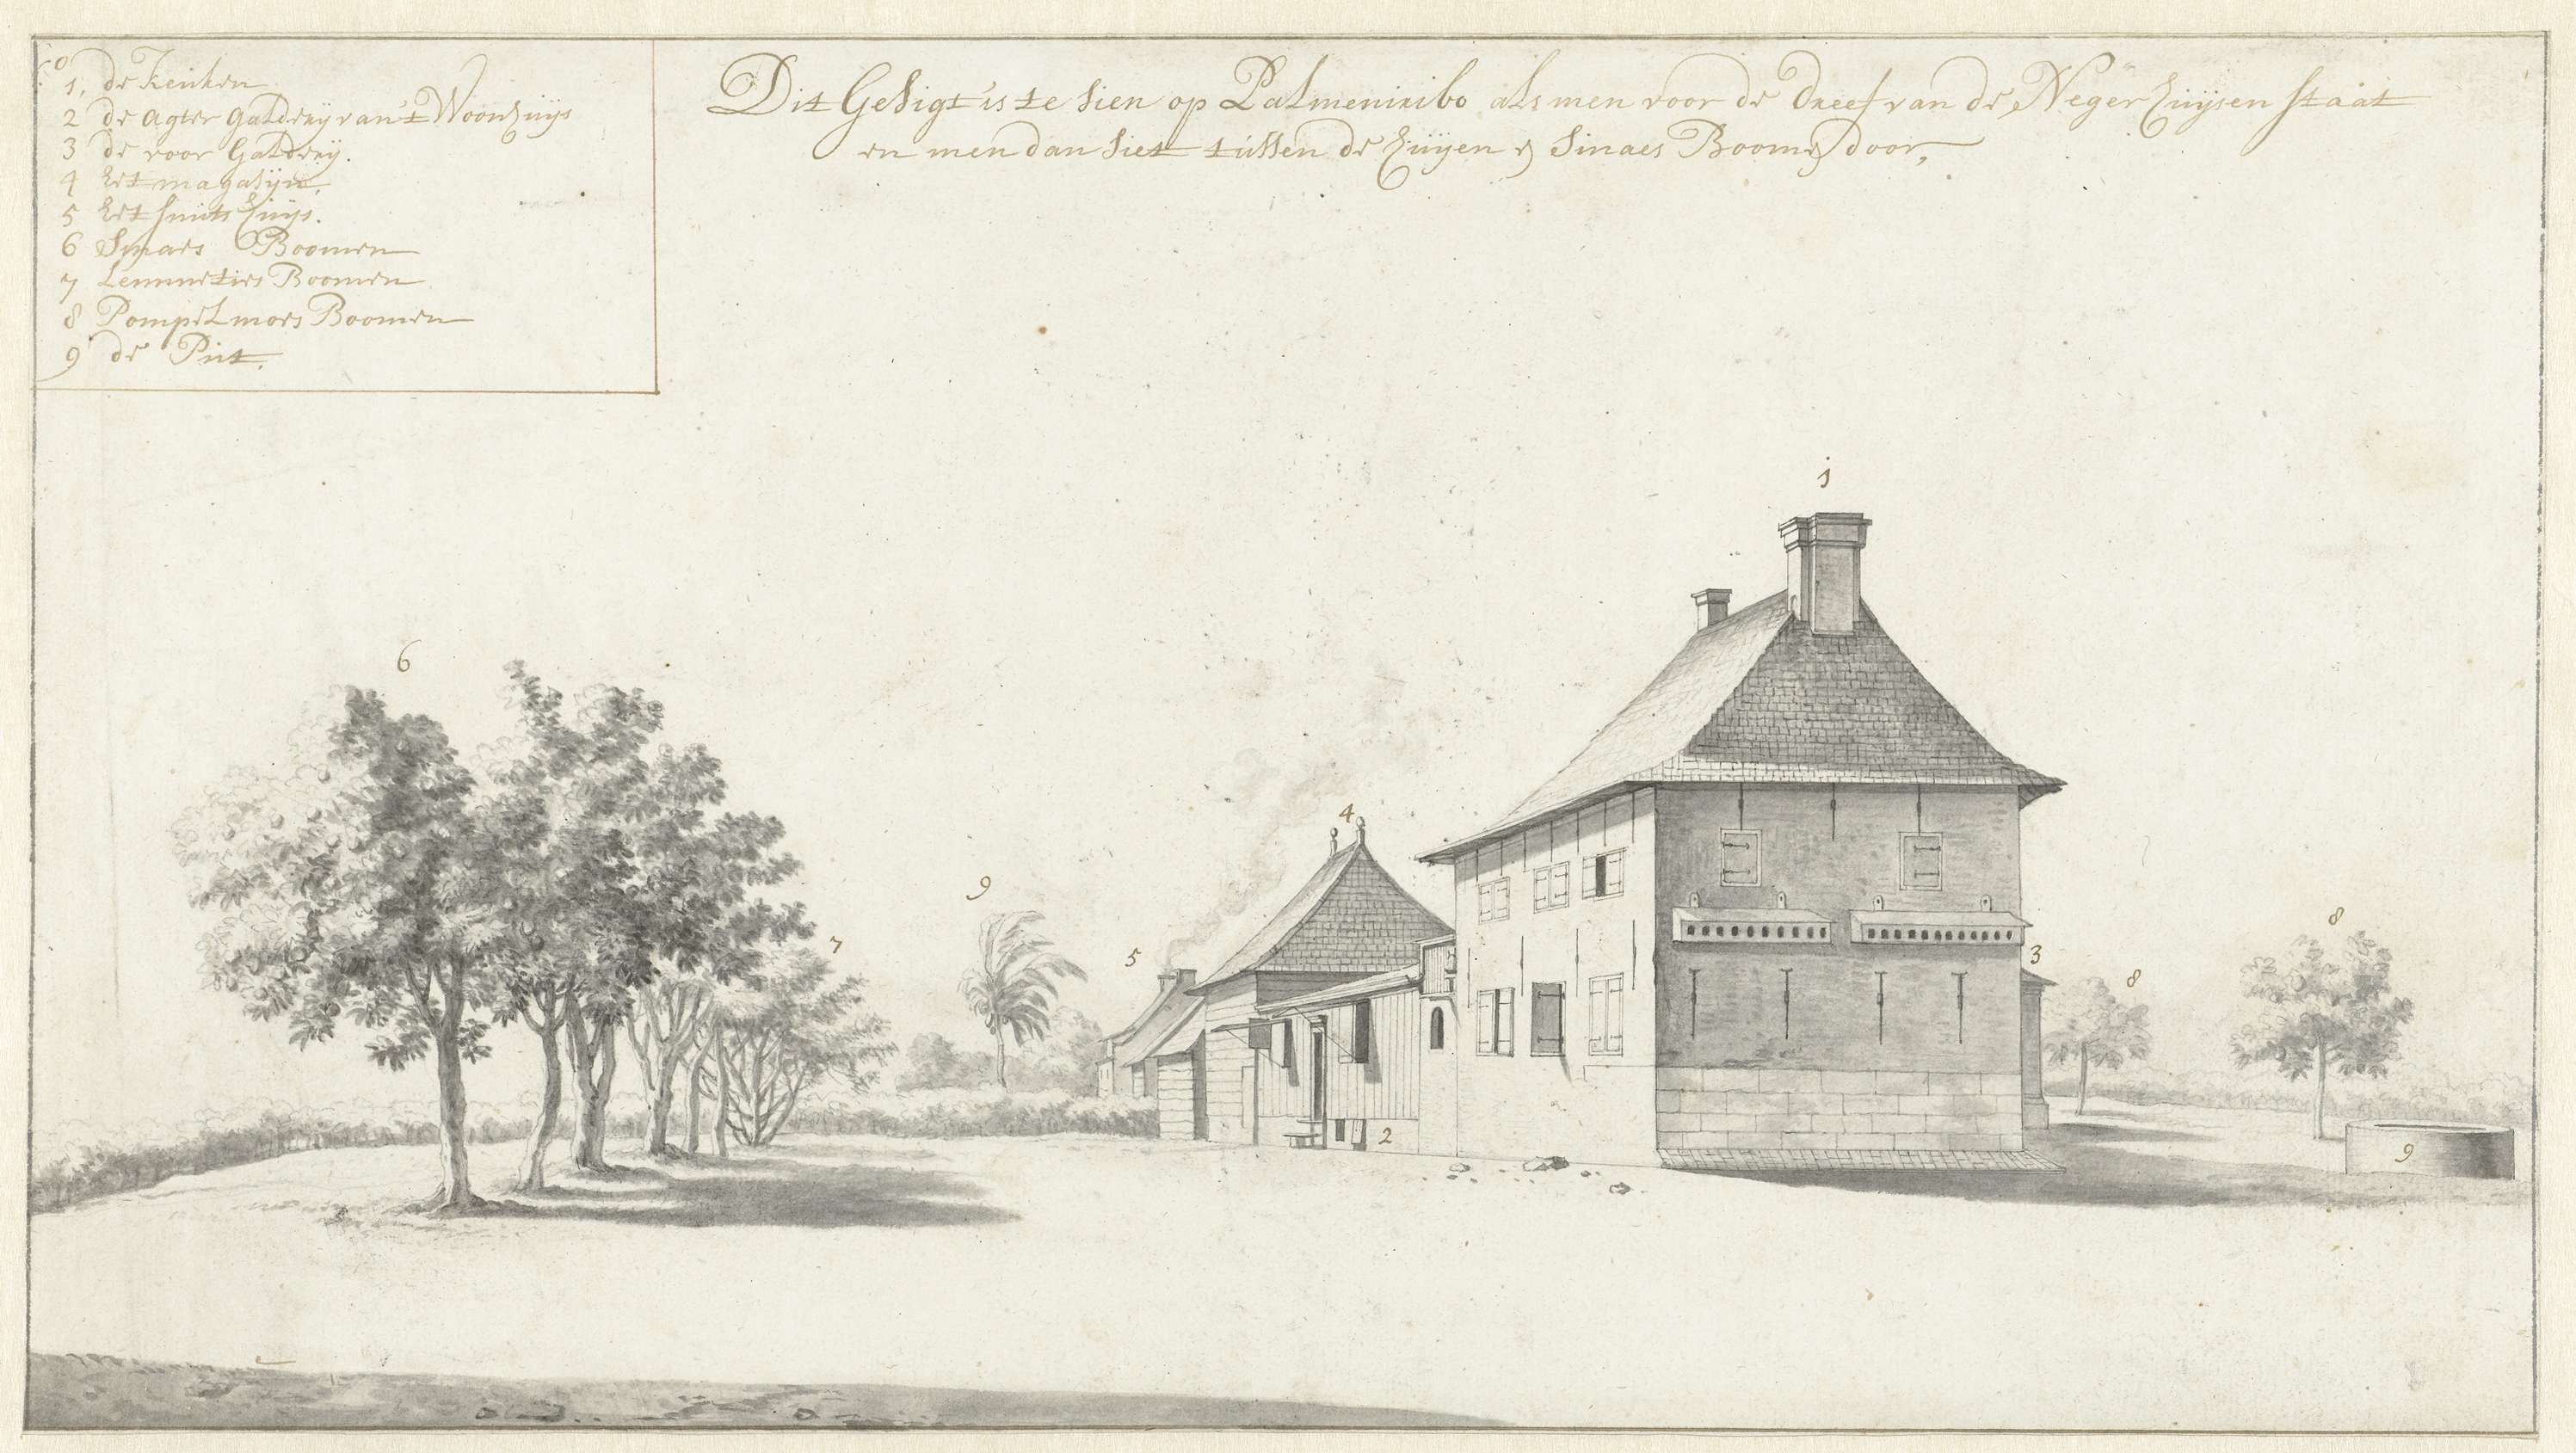 1, de Keuken
2 de agter Galderij van 't Woonhuijs
3 de voor Galderij.
4 het magasijn.
5 het smits huijs.
6 Sinaes Boomen
7 Lemmeties Boomen
8 Pompelmoes Boomen
9 de Put.
Dit Gesigt is te sien op Palmeniribo als men voor de dreef van de Neger huijsen staat
en men dan siet tussen de huijsen en Sinaes Boomen door,
1
6
4
9
7
5
3
8
8
2
9